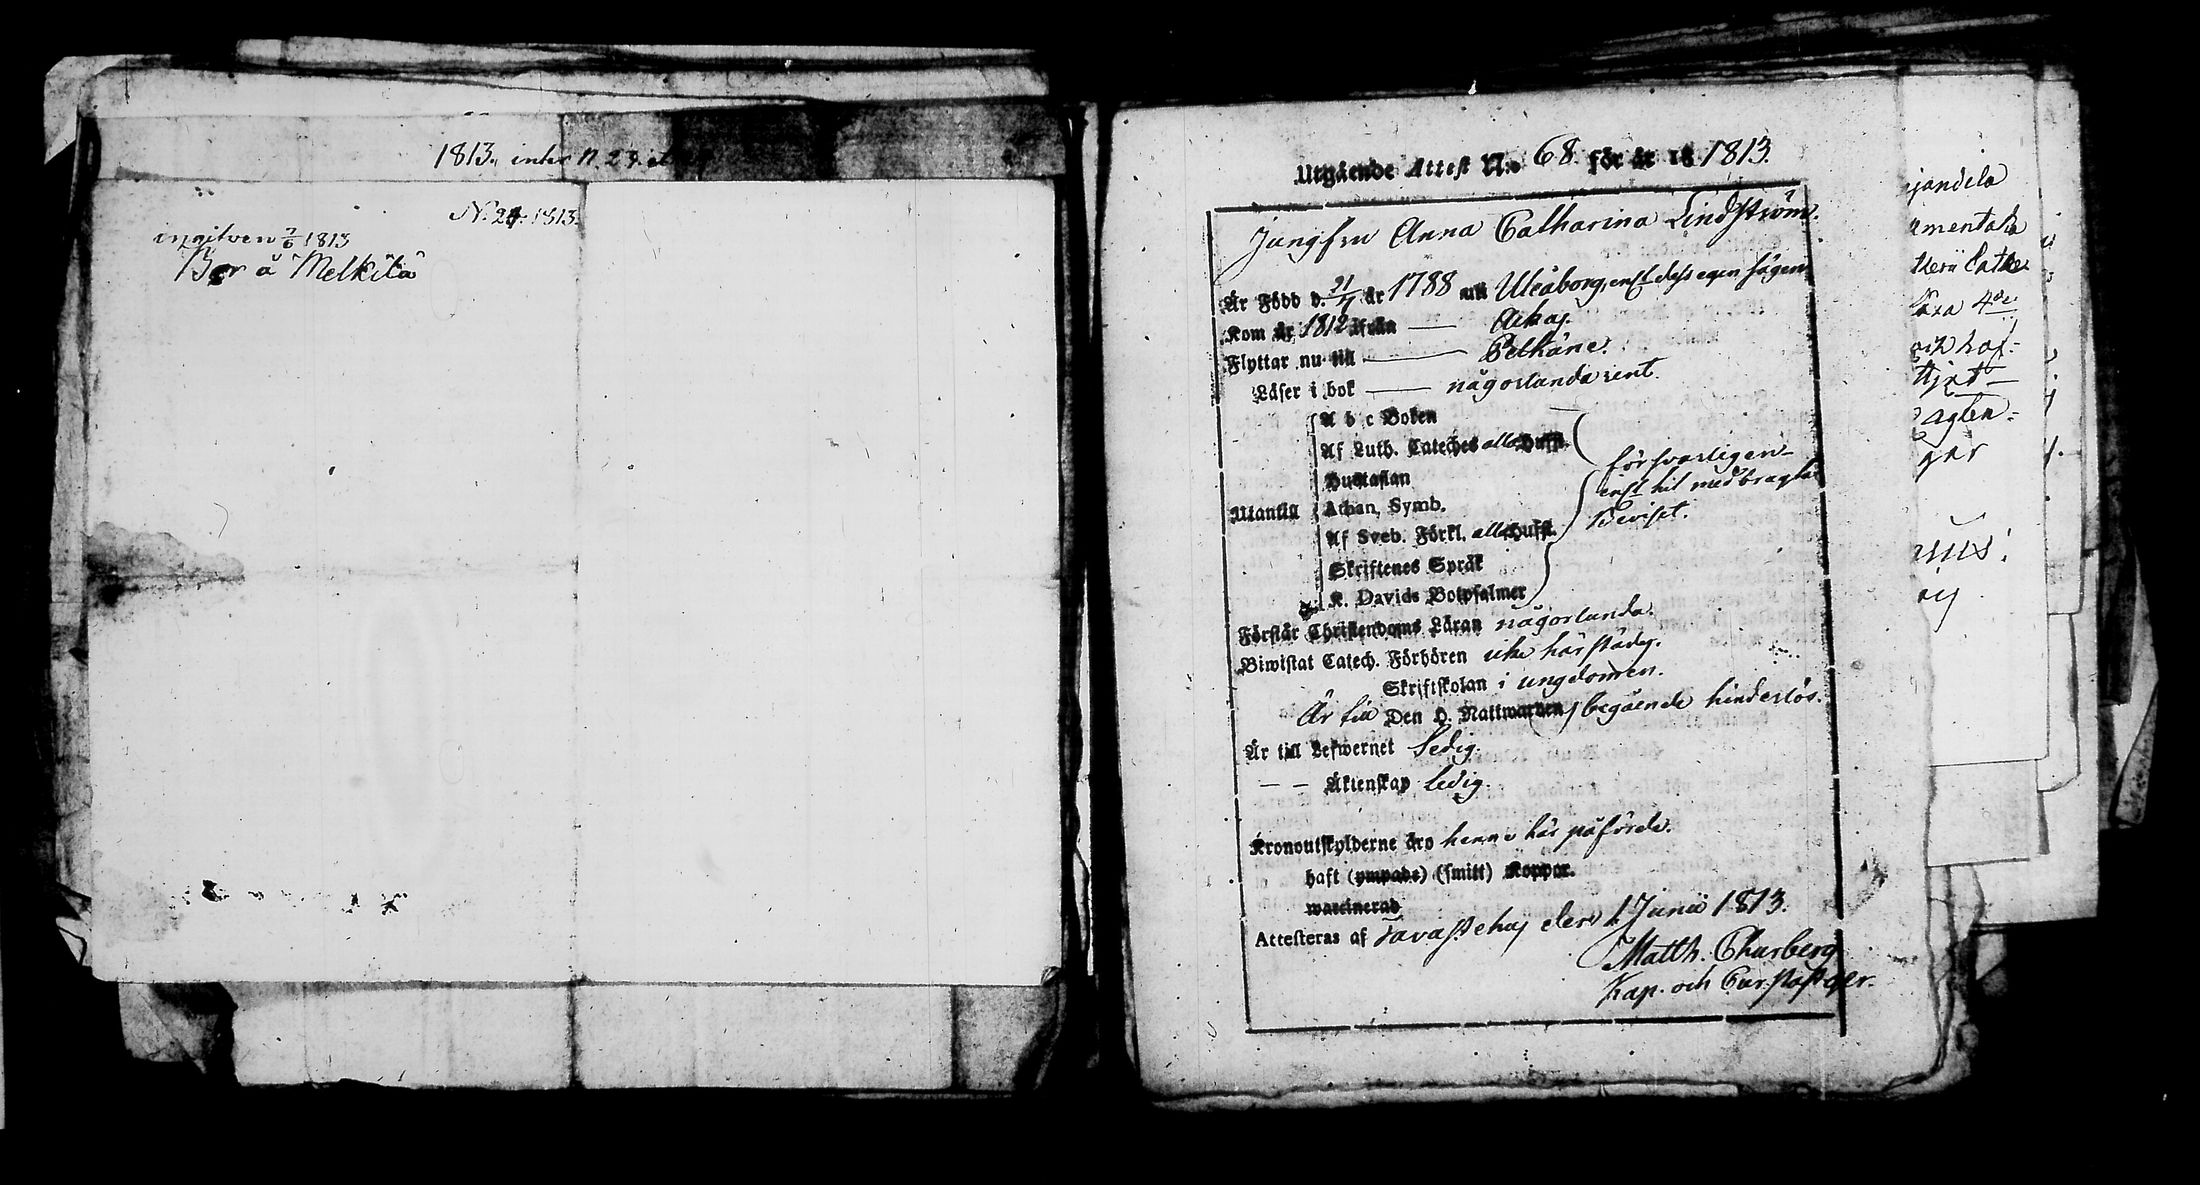 1813. inter N. 23. et
N. 24. 1813.
ingifven 7/6 1813
Bor å Melkilä
Utgående Attest N:o 68. för år 18 1813.
Jungfru Anna Catharina Lindström.
Är Född d. 21/4 år 1788 uti Uleåborg, enl. dess egen sägen
Kom år 1812 ifrån — Achas.
Flyttar nu till — Pelkäne.
Läser i bok — någorlunda rent.
A b c Boken
Af Luth. Cateches alla Hufst.
Hustaflan
Utantill Athan. Symb.
Af Sveb. Förkl. alla Hufst.
Skriftenes Språk
K. Davids Botpsalmer
försvarligen
enl. hit medbragta
Beviset.
Förstår Christendoms Läran någorlunda.
Biwistat Catech. Förhören icke härstädes.
Skriftskolan i ungdomen.
Är till Den H. Nattwarden begående hinderlös.
Är till Lefwernet Ledig.
— — Äktenskap Ledig.
Kronoutskylderne äro henne här påförde.
haft (ympade) (smitt) Koppor.
waccinerad
Attesteras af Tavastehus den 1 Junii 1813.
Matth. Charberg
Kap. och
jandela
amentaka
Cathe
4de
och haf:
aglen:
gar